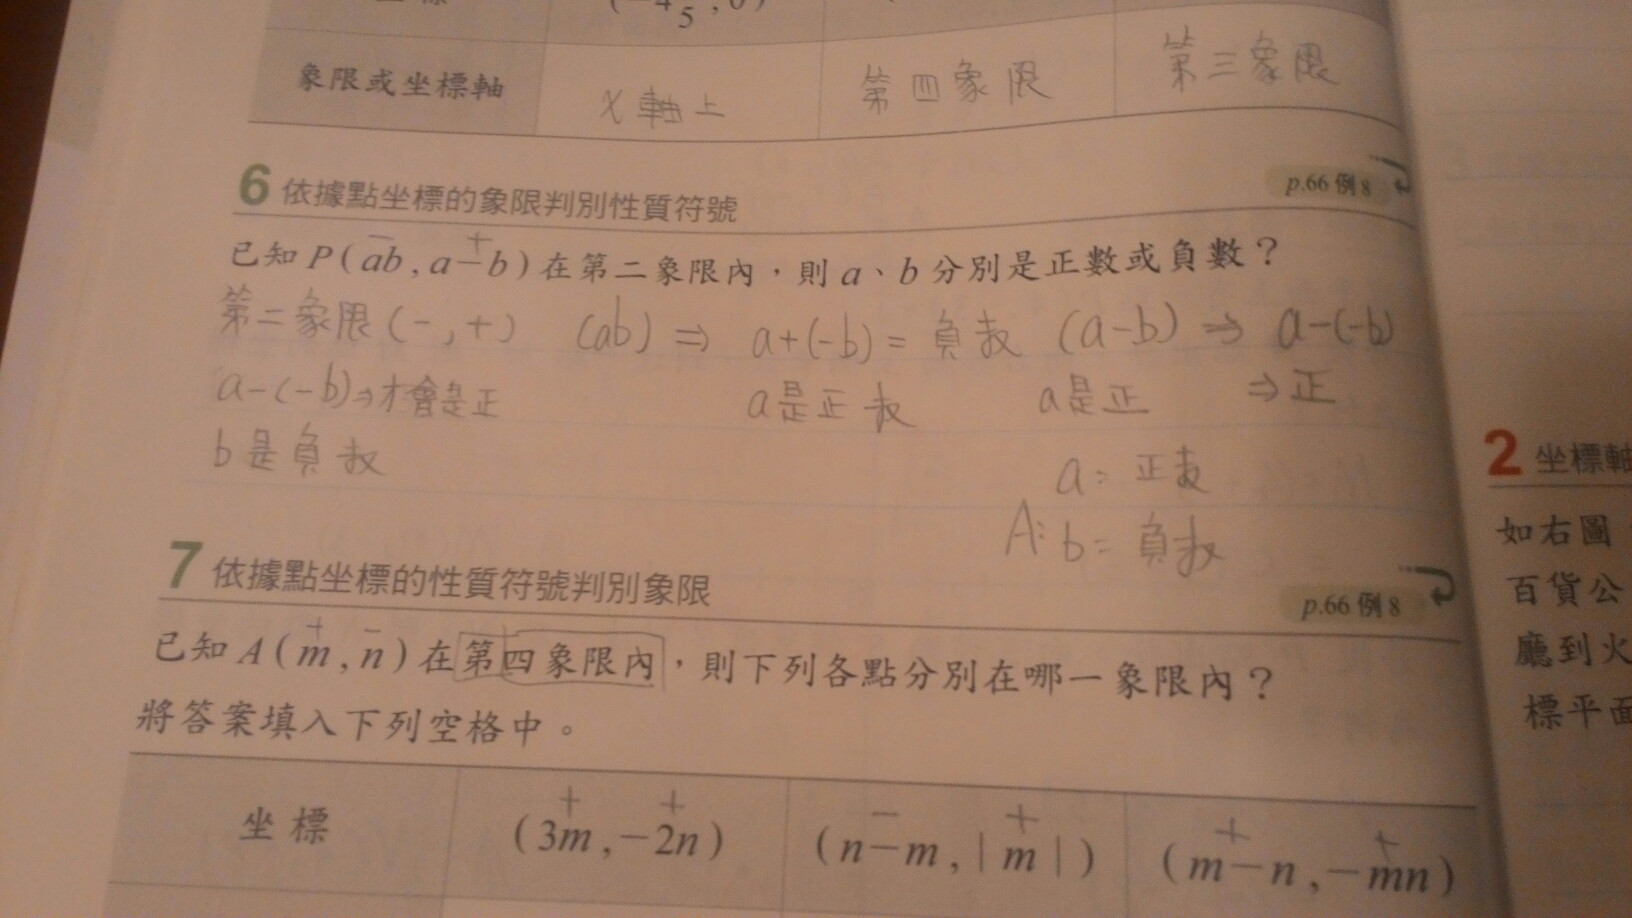 象限或坐標軸 x軸上 第四象限 第三象限
6 依據點坐標的象限判別性質符號 p.66 例 8
− +
已知 P(ab, a−b) 在第二象限內，則 a、b 分別是正數或負數？
第二象限(-,+) (ab) ⇒ a+(-b) = 負数 (a-b) ⇒ a-(-b)
a-(-b)⇒才會是正 a是正数 a是正 ⇒正
b是負数
a: 正数
A: b= 負数
7 依據點坐標的性質符號判別象限 p.66 例 8
+ −
已知 A(m, n) 在第四象限內，則下列各點分別在哪一象限內？
將答案填入下列空格中。
+ + − + + +
坐標 (3m, −2n) (n−m, |m|) (m−n, −mn)
2 坐標軸
如右圖
百貨公
廳到火
標平面